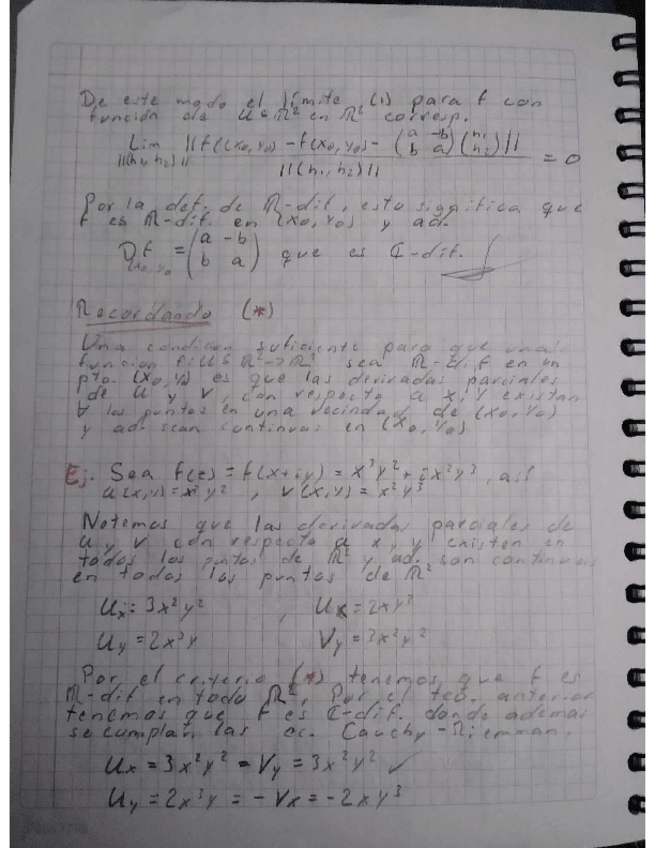 De este modo el límite (1) para f con
función de U⊆ℝ² en ℝ² corresp.
Lim ||f((x₀,y₀) - f(x₀,y₀) - (a -b / b a)(h₁ / h₂)|| / ||(h₁,h₂)|| = 0
||(h₁,h₂)||
Por la def. de ℝ-dif, esto significa que
f es ℝ-dif. en (x₀,y₀) y ad.
Df x₀,y₀ = (a -b / b a) que es ℂ-dif.
Recordando (*)
Una condición suficiente para que una
función f:U⊆ℝ²→ℝ² sea ℝ-dif en un
pto. (x₀,y₀) es que las derivadas parciales
de u y v, con respecto a x, y existan
∀ los puntos en una vecindad de (x₀,y₀)
y ad. sean continuas en (x₀,y₀)
Ej. Sea f(z) = f(x+iy) = x³y² + ix²y³, así
u(x,y) = x³y², v(x,y) = x²y³
Notemos que las derivadas parciales de
u y v con respecto a x, y existen en
todos los puntos de ℝ² y ad. son continuas
en todos los puntos de ℝ²
Ux = 3x²y² , Ux = 2xy³
Uy = 2x³y Vy = 3x²y²
Por el criterio (*) tenemos que f es
ℝ-dif en todo ℝ², Por el teo. anterior
tenemos que f es ℂ-dif. donde además
se cumplan las ec. Cauchy-Riemman.
Ux = 3x²y² = Vy = 3x²y² ✓
Uy = 2x³y = -Vx = -2xy³